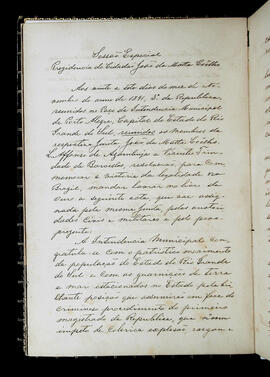 Sessão Especial
Presidencia do Cidadão João da Motta Coelho
Aos vinte e oito dias do mez de No-
vembro do anno de 1891, 3º da Republica,
reunidos no Paço da Intendencia Municipal
de Porto Alegre, Capital do Estado do Rio
Grande do Sul, reunidos os Membros da
respectiva Junta, João da Motta Coelho,
Affonso de Azambuja e Trin-
dade de Barcellos, resolveram para com-
memorar a victoria da legalidade no
Brazil, mandar lavrar no livro de
Ouro a seguinte acta, que vae assig-
nada pela mesma Junta, pelas autori-
dades Civis e militares e pelo povo
A Intendencia Municipal con-
gratula-se com o patriotico movimento
da população do Estado do Rio Grande
do Sul e com as guarnições de terra
e mar estacionadas no Estado pela bri-
lhante posição que assumiram em face do
criminoso procedimento do primeiro
magistrado da Republica, que n'um
impeto de colerica explosão rasgou a